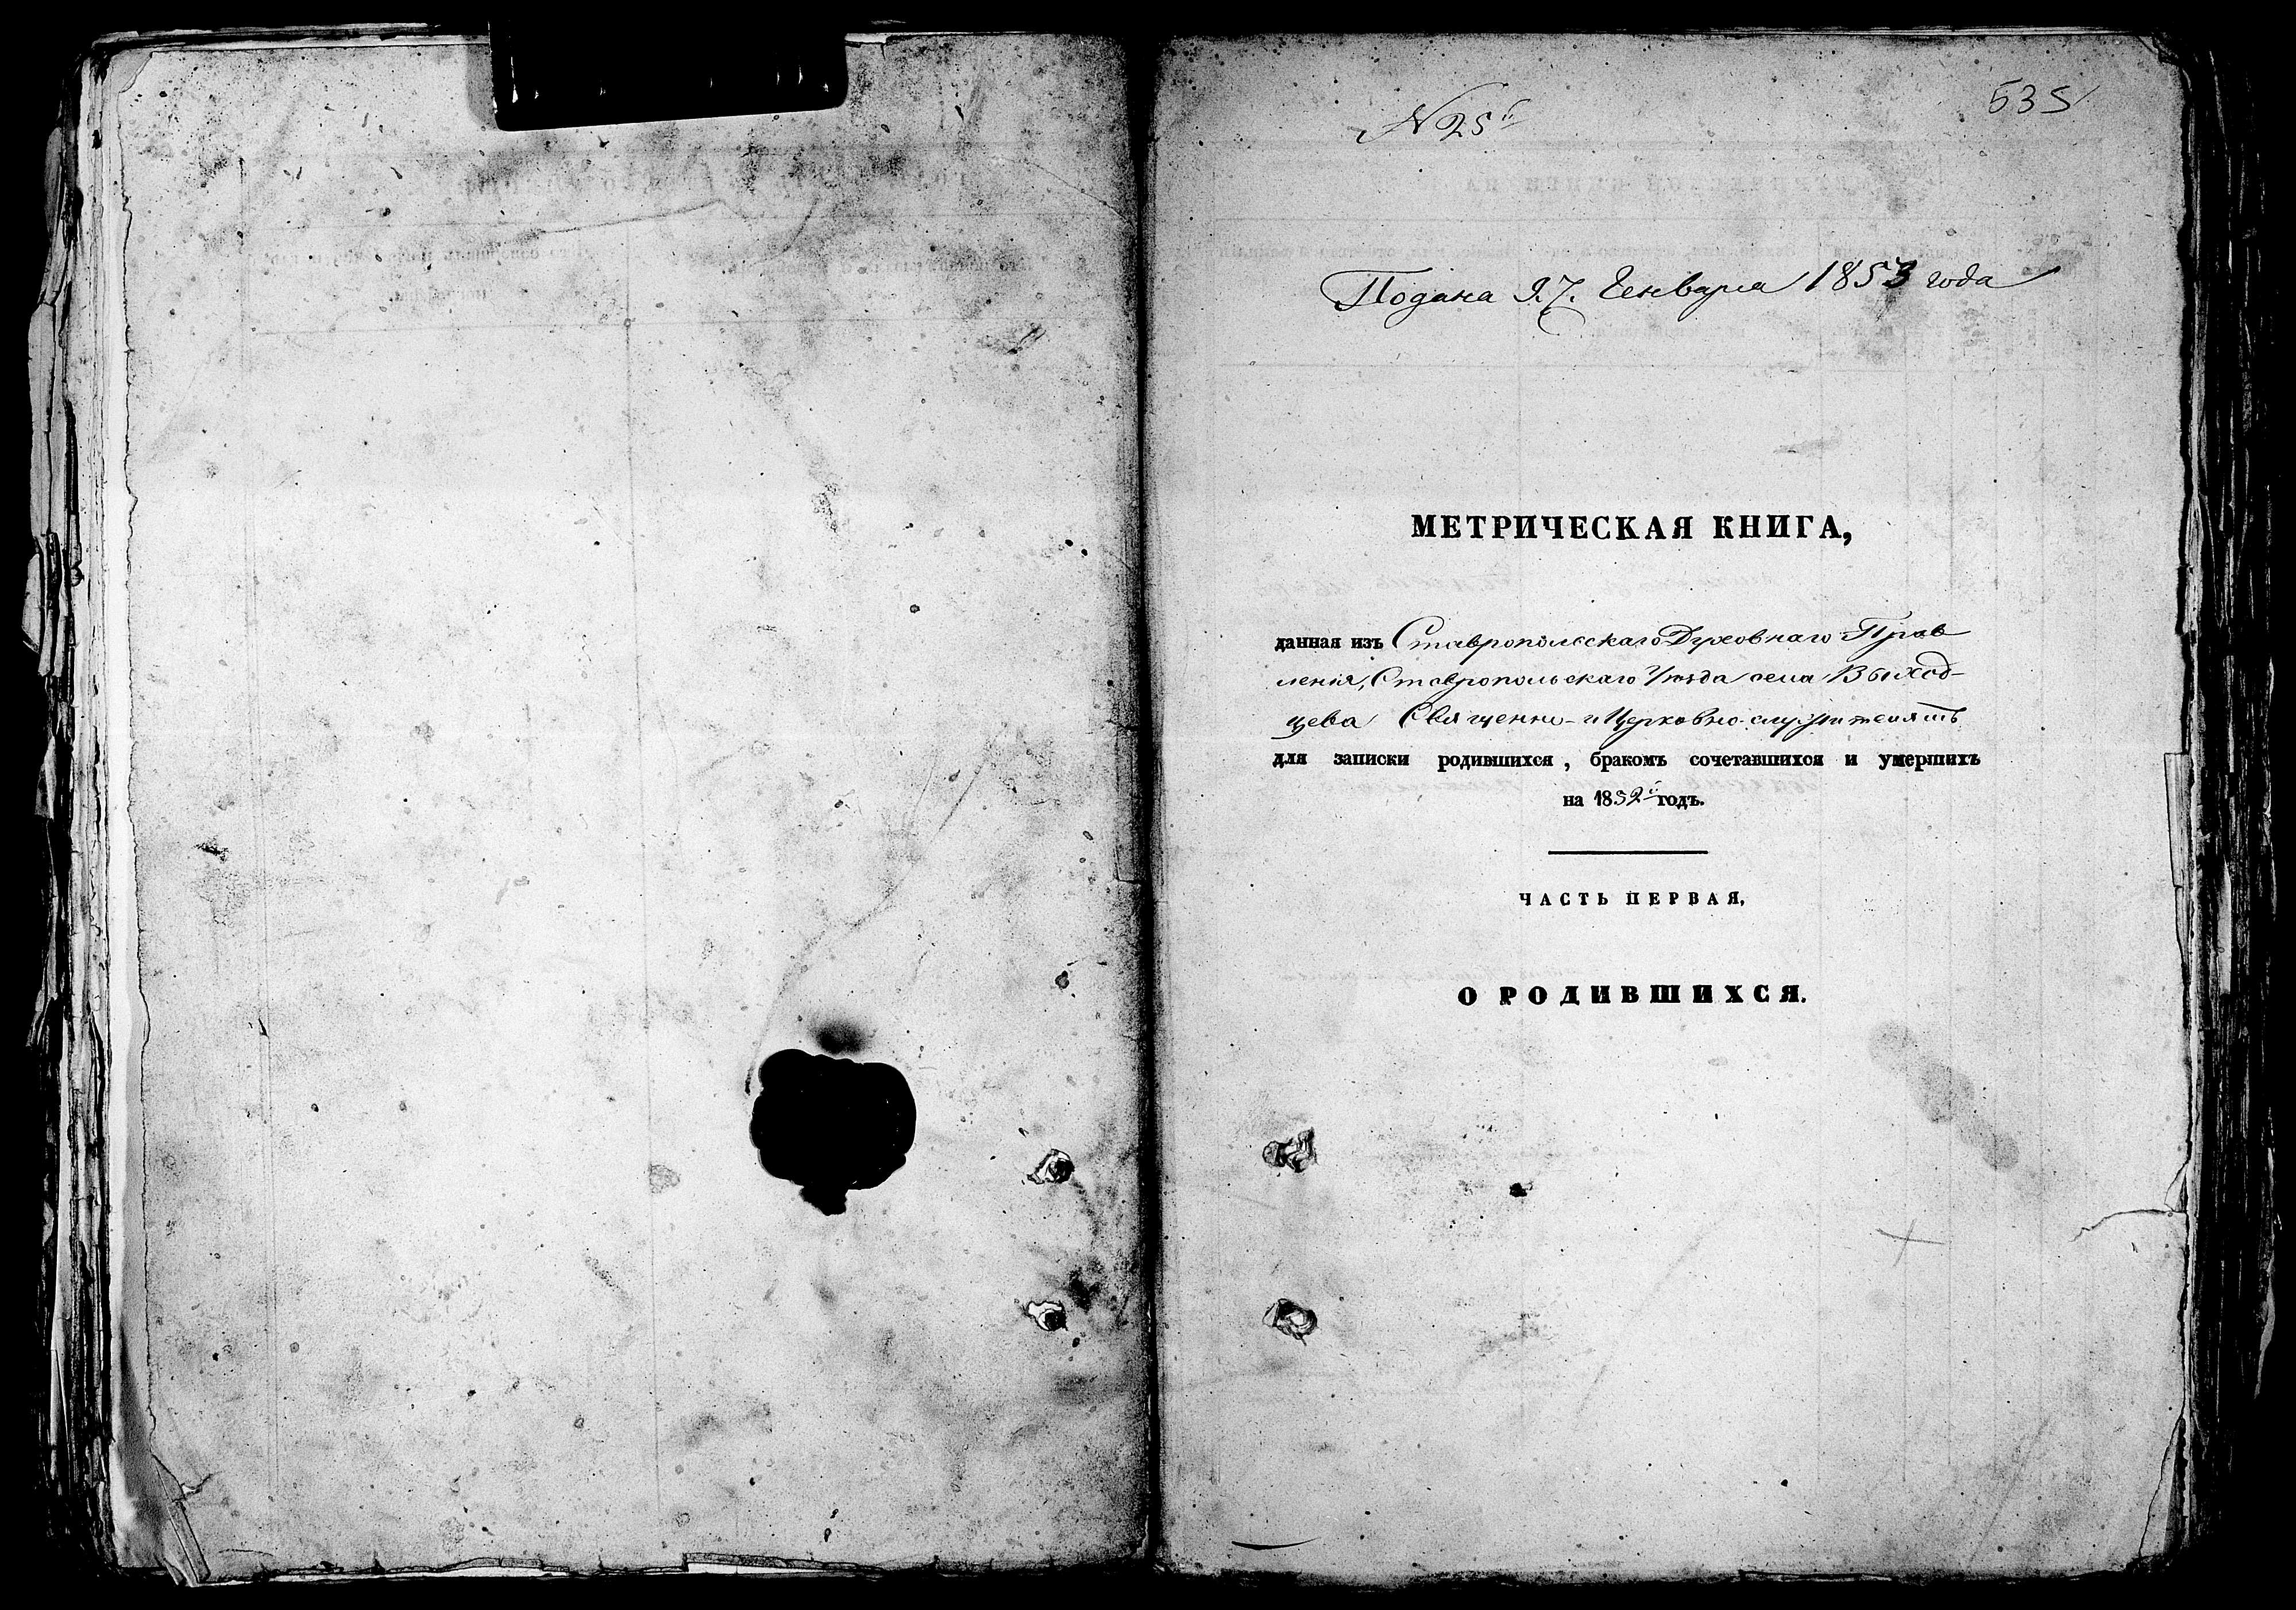 535
N 25й
Подана 27. Генваря 1853 года
МЕТРИЧЕСКАЯ КНИГА,
данная изъ Ставропольскаго Духовнаго Прав
ленія, Ставропольскаго Уѣзда села Выход-
цева Священно- и Церковно-служителямъ
для записки родившихся, бракомъ сочетавшихся и умершихъ
на 1852й годъ.
ЧАСТЬ ПЕРВАЯ,
О РОДИВШИХСЯ.